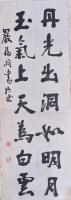 丹光出洞如明月
玉氣上天為白雲
嚴福洞書